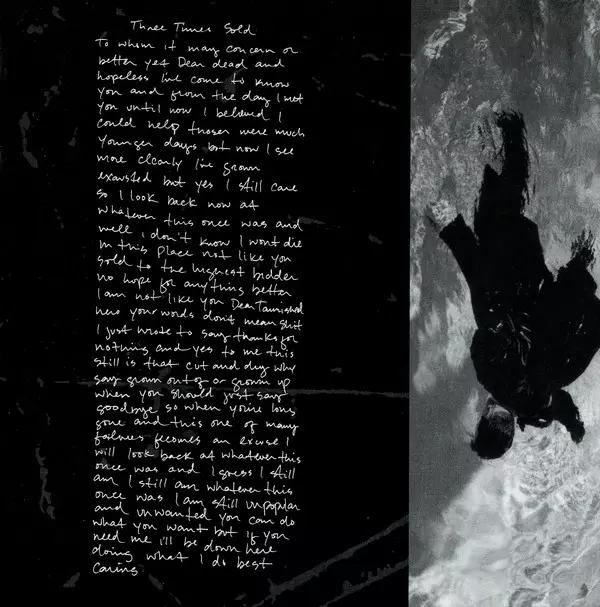 Three Times Sold
To whom it may concern or
better yet Dear dead and
hopeless I've come to know
you and from the day I met
you until now I believed I
could help those were much
younger days but now I see
more clearly I've grown
exausted but yes I still care
so I look back now at
whatever this once was and
well i don't know I wont die
in this place not like you
sold to the highest bidder
no hope for anything better
I am not like you Dear Tarnished
hero your words don't mean shit
I just wrote to say thanks for
nothing and yes to me this
still is that cut and dry why
say grown out of or grown up
when you should just say
goodbye so when you're long
gone and this one of many
failures becomes an excuse I
will look back at whatever this
once was and I guess I still
am I still am whatever this
once was I am still unpopular
and unwanted you can do
what you want but if you
need me i'll be down here
doing what I do best
caring